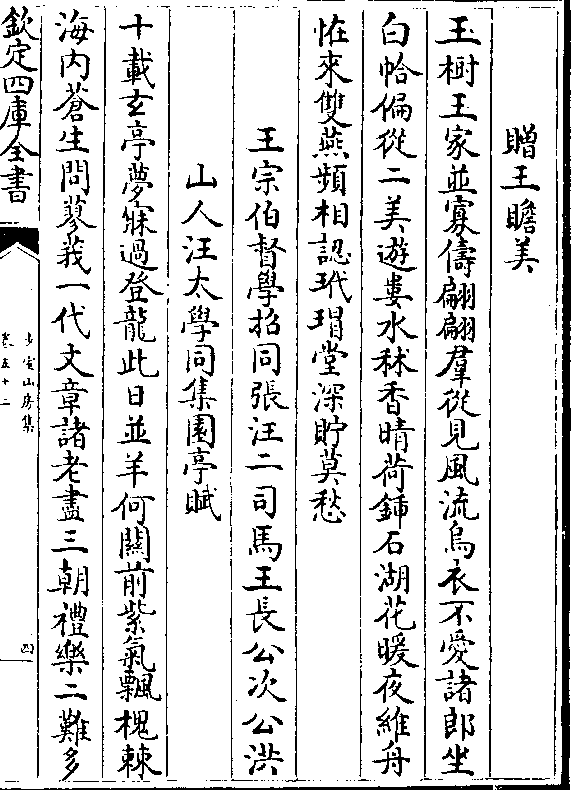 贈王瞻美
玉樹王家並寡儔翩翩羣從見風流烏衣不愛諸郎坐
白帢偏從二美遊婁水秫香晴荷鍤石湖花暖夜維舟
怪來雙燕頻相認玳瑁堂深貯莫愁
王宗伯督學招同張汪二司馬王長公次公洪
山人汪太學同集園亭賦
十載玄亭夢寐過登龍此日並羊何關前紫氣飄槐棘
海内蒼生問蓼莪一代文章諸老盡三朝禮樂二難多
欽定四庫全書
少室山房集
卷五十二
四